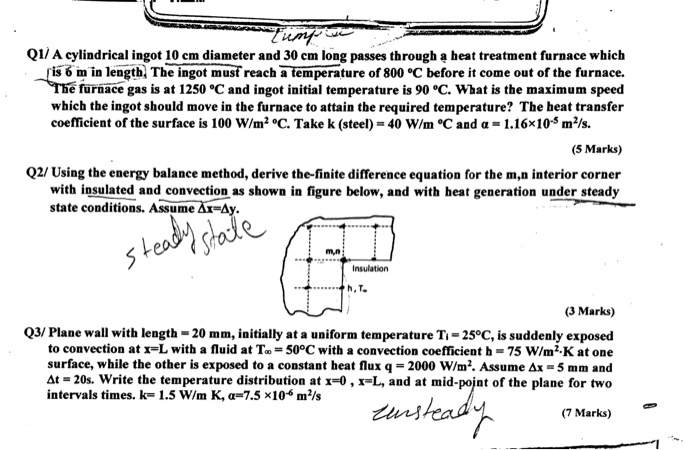 Lumped
Q1/ A cylindrical ingot 10 cm diameter and 30 cm long passes through a heat treatment furnace which
is 6 m in length. The ingot must reach a temperature of 800 °C before it come out of the furnace.
The furnace gas is at 1250 °C and ingot initial temperature is 90 °C. What is the maximum speed
which the ingot should move in the furnace to attain the required temperature? The heat transfer
coefficient of the surface is 100 W/m² °C. Take k (steel) = 40 W/m °C and α = 1.16×10⁻⁵ m²/s.
(5 Marks)
Q2/ Using the energy balance method, derive the-finite difference equation for the m,n interior corner
with insulated and convection as shown in figure below, and with heat generation under steady
state conditions. Assume Δx=Δy.
steady state
m,n
Insulation
h, T∞
(3 Marks)
Q3/ Plane wall with length = 20 mm, initially at a uniform temperature Tᵢ = 25°C, is suddenly exposed
to convection at x=L with a fluid at T∞ = 50°C with a convection coefficient h = 75 W/m²·K at one
surface, while the other is exposed to a constant heat flux q = 2000 W/m². Assume Δx = 5 mm and
Δt = 20s. Write the temperature distribution at x=0 , x=L, and at mid-point of the plane for two
intervals times. k= 1.5 W/m K, α=7.5 ×10⁻⁶ m²/s
unsteady
(7 Marks)